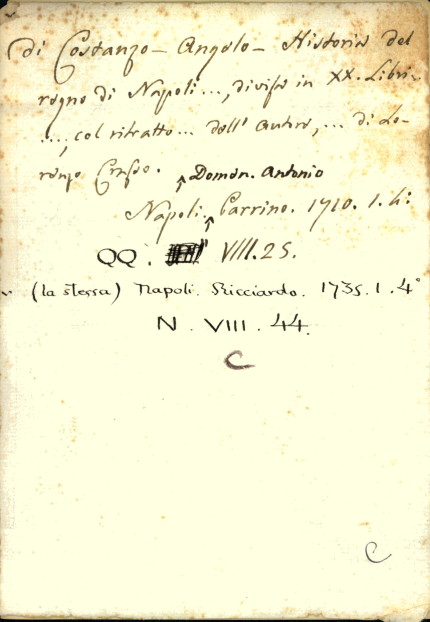 di Costanzo - Angelo - Historia del
regno di Napoli..., divisa in XX. Libri.
...., col ritratto... dell' autore,... di Lo-
renzo Crasso.
Domen. Antonio
Napoli. Parrino. 1710. 1. 4:
QQ. VIII. 25.
(la stessa) Napoli. Ricciardo. 1735. 1. 4°
N. VIII. 44.
C
C